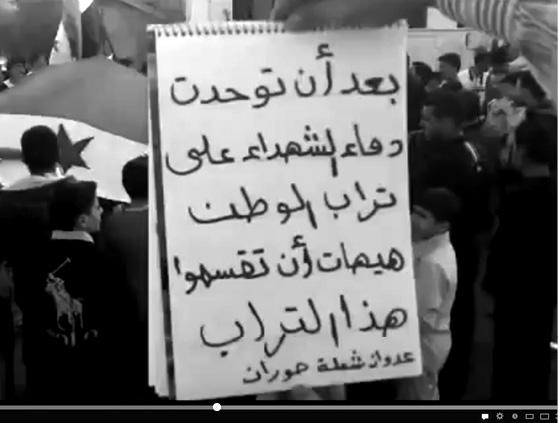 بعد أن توحدت
دماء الشهداء على
تراب الوطن
هيهات أن تقسموا
هذا التراب
عدوان شعلة حوران